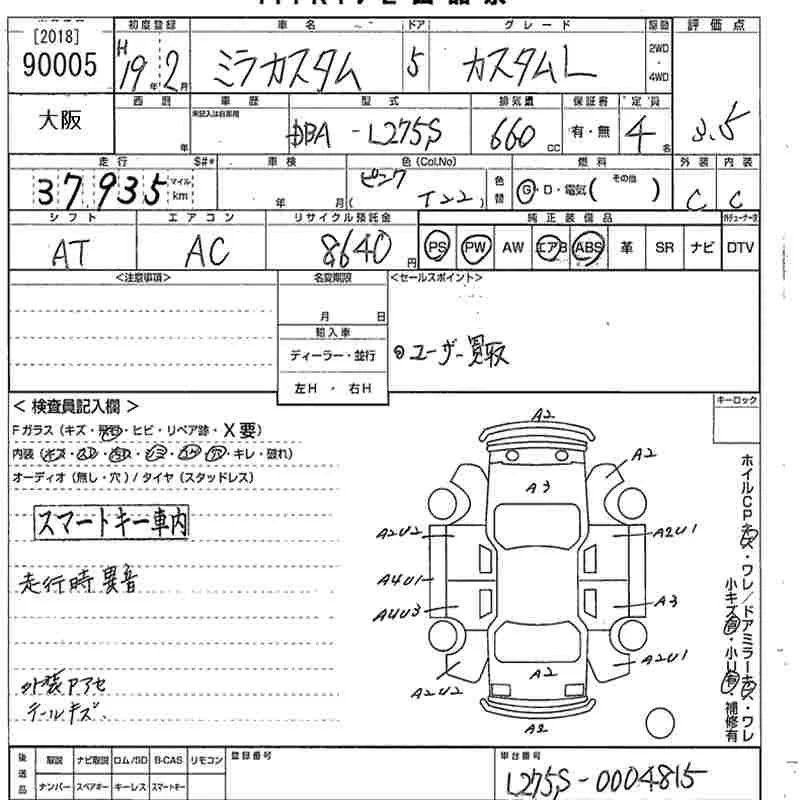 [2018]
90005
初度登録
H19年2月
車名
ミラカスタム
ドア
5
グレード
カスタムL
駆動
2WD
・
4WD
評価点
3.5
大阪
西暦
年
車歴
未記入は自家用
型式
DBA-L275S
排気量
660 CC
保証書
有・無
定員
4名
走行
37,935
マイル
km
S#
車検
年 月
色(Col.No)
ピンク
( T22 )
色替
燃料
G・D・電気( その他 )
外装
C
内装
C
シフト
AT
エアコン
AC
リサイクル預託金
8640円
純正装備品
PS
PW
AW
エアB
ABS
革
SR
ナビ
DTV
<注意事項>
名変期限
月 日
輸入車
ディーラー・並行
左H ・ 右H
<セールスポイント>
◎ユーザー買取
キーロック
< 検査員記入欄 >
Fガラス(キズ・飛石・ヒビ・リペア跡・X要)
・キレ・破れ)
オーディオ(無し・穴)/タイヤ(スタッドレス)
スマートキー車内
走行時異音
外装アセ
テールキズ.
A2
A2
A3
A2U2
A2U1
A4U1
A4U3
A3
A2U1
A2U2
A2
A2
ホイルCPキズ・ワレ/ドアミラーキズ・ワレ
小キズ有・小U有・補修有
後送品
取説
ナビ取説
ロム/SD
B-CAS
リモコン
ナンバー
スペアキー
キーレス
スマートキー
登録番号
車台番号
L275S-0004815